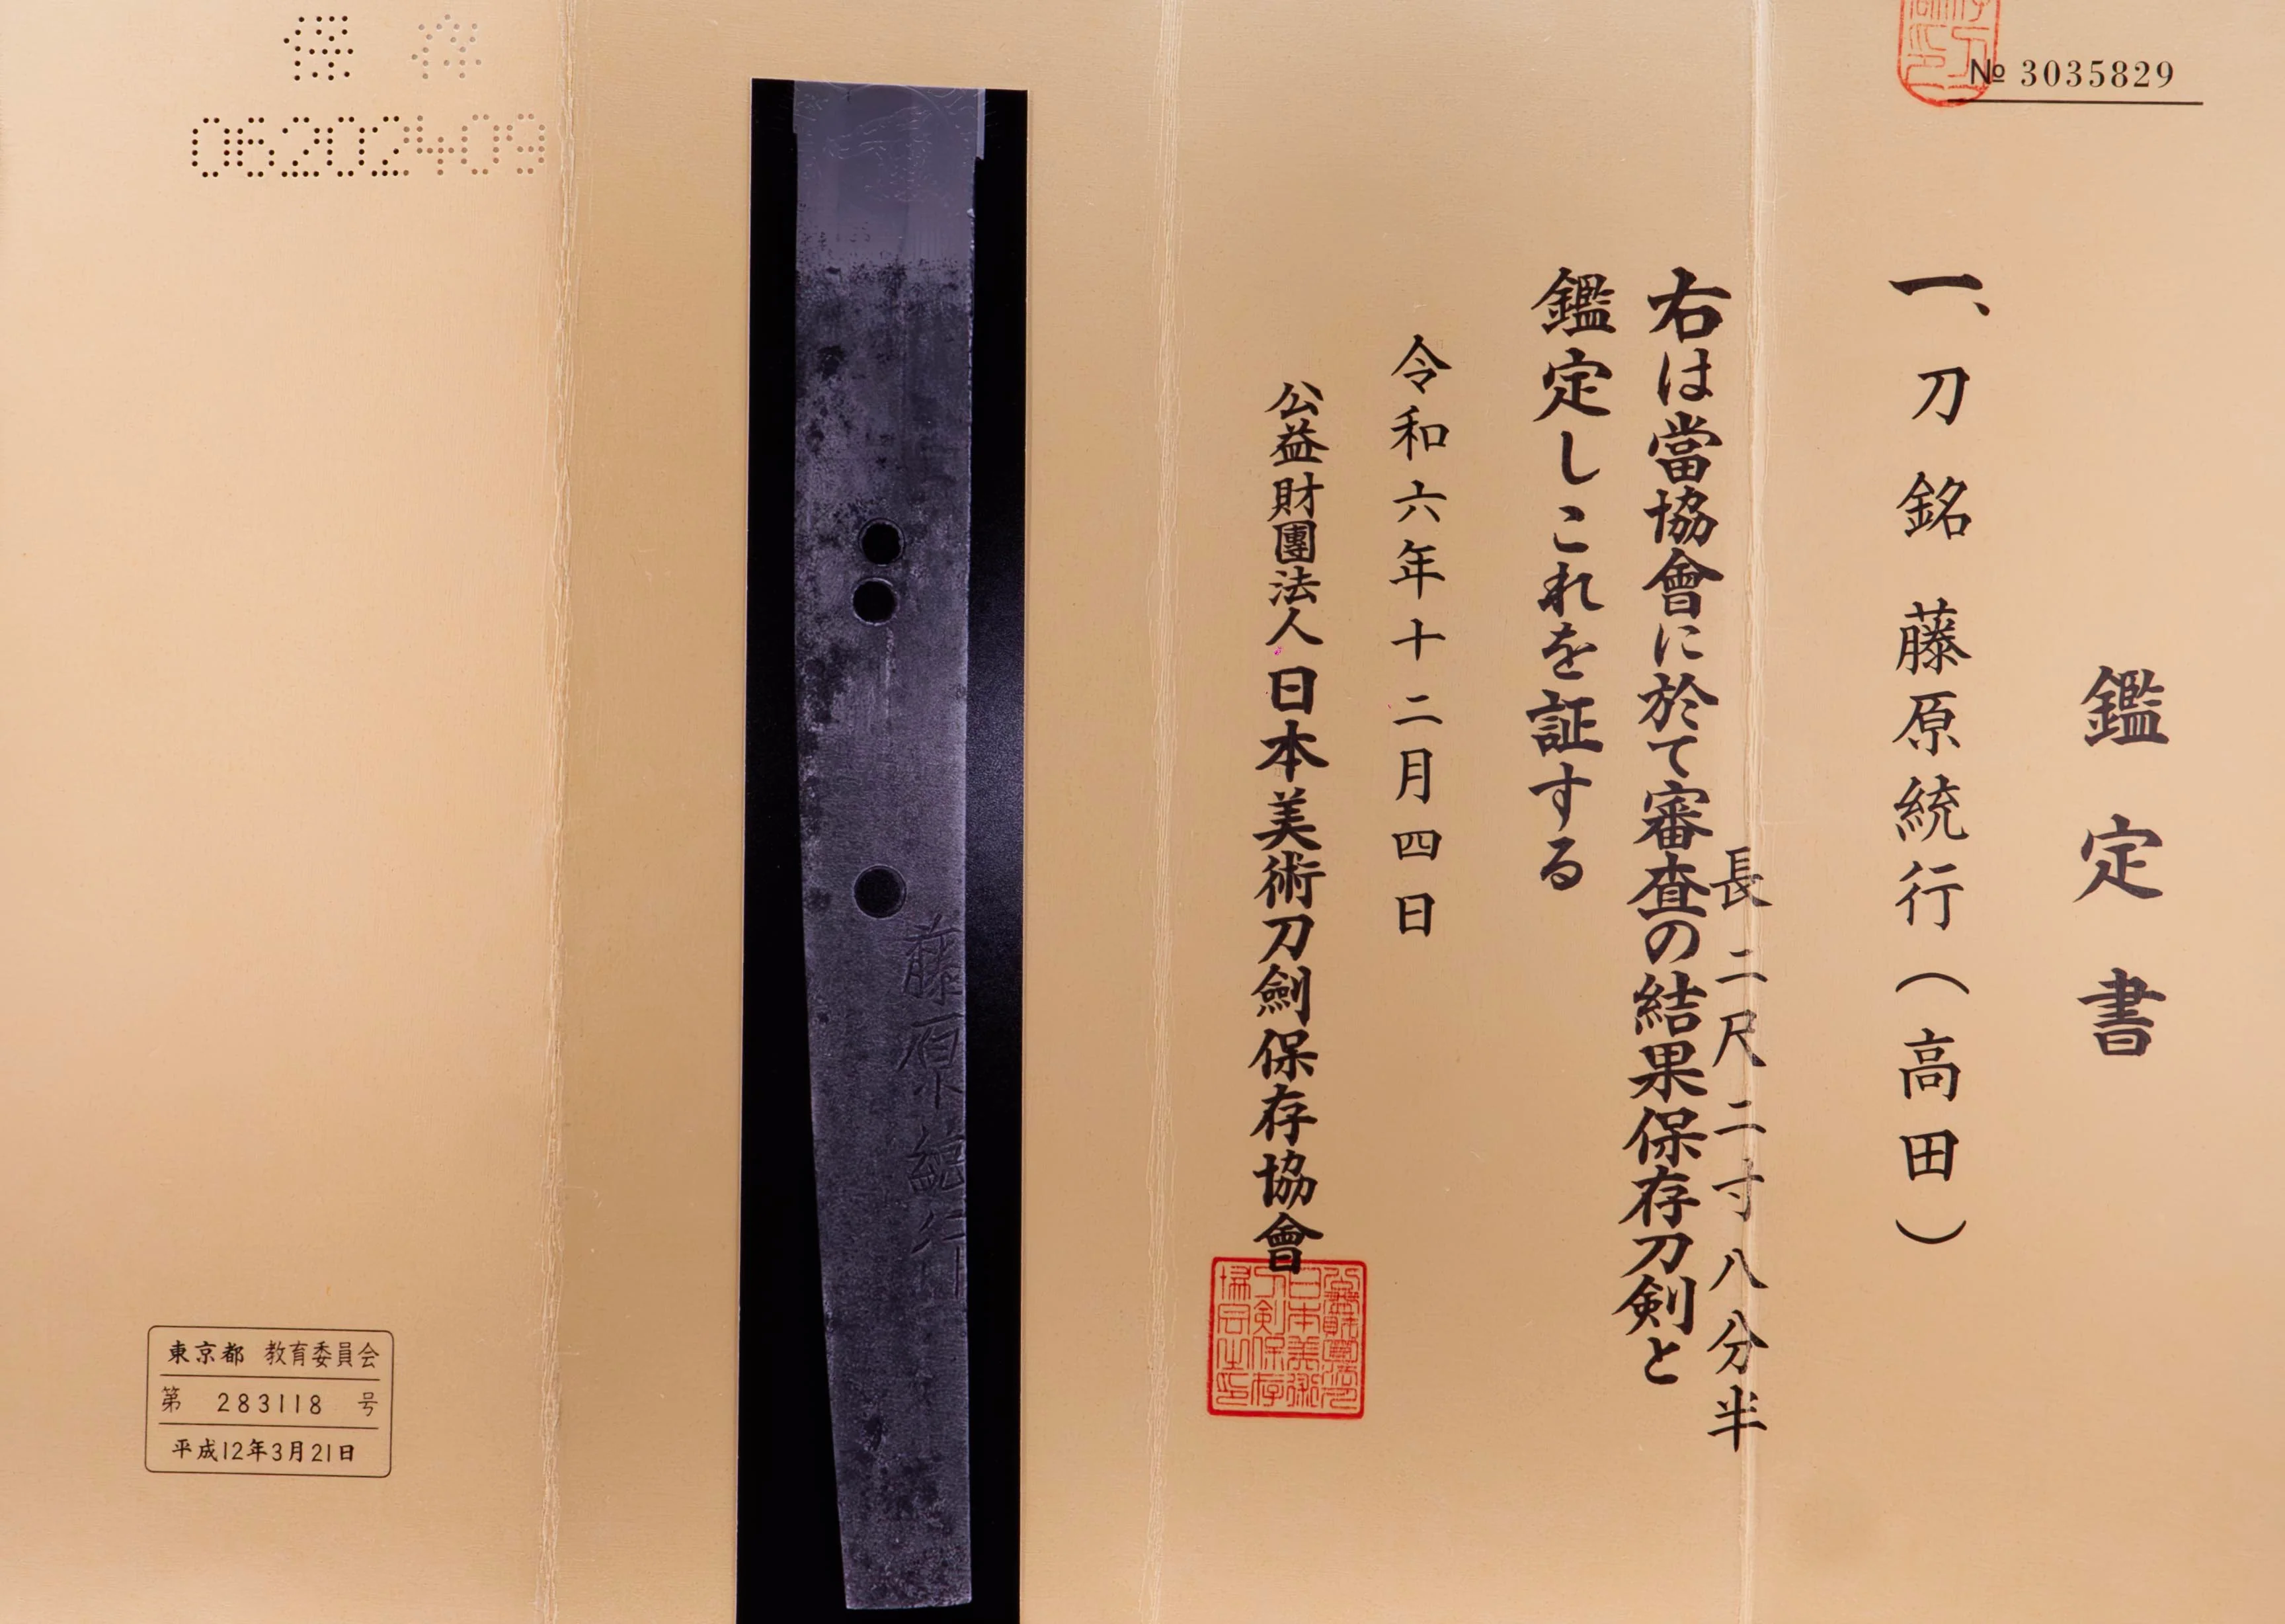 № 3035829
鑑定書
一、刀 銘 藤原統行(高田)
長 二尺二寸八分半
右は當協會に於て審査の結果保存刀剣と
鑑定しこれを証する
令和六年十二月四日
公益財團法人 日本美術刀劍保存協會
藤原統行
06202409
東京都 教育委員会
第 283118 号
平成12年3月21日